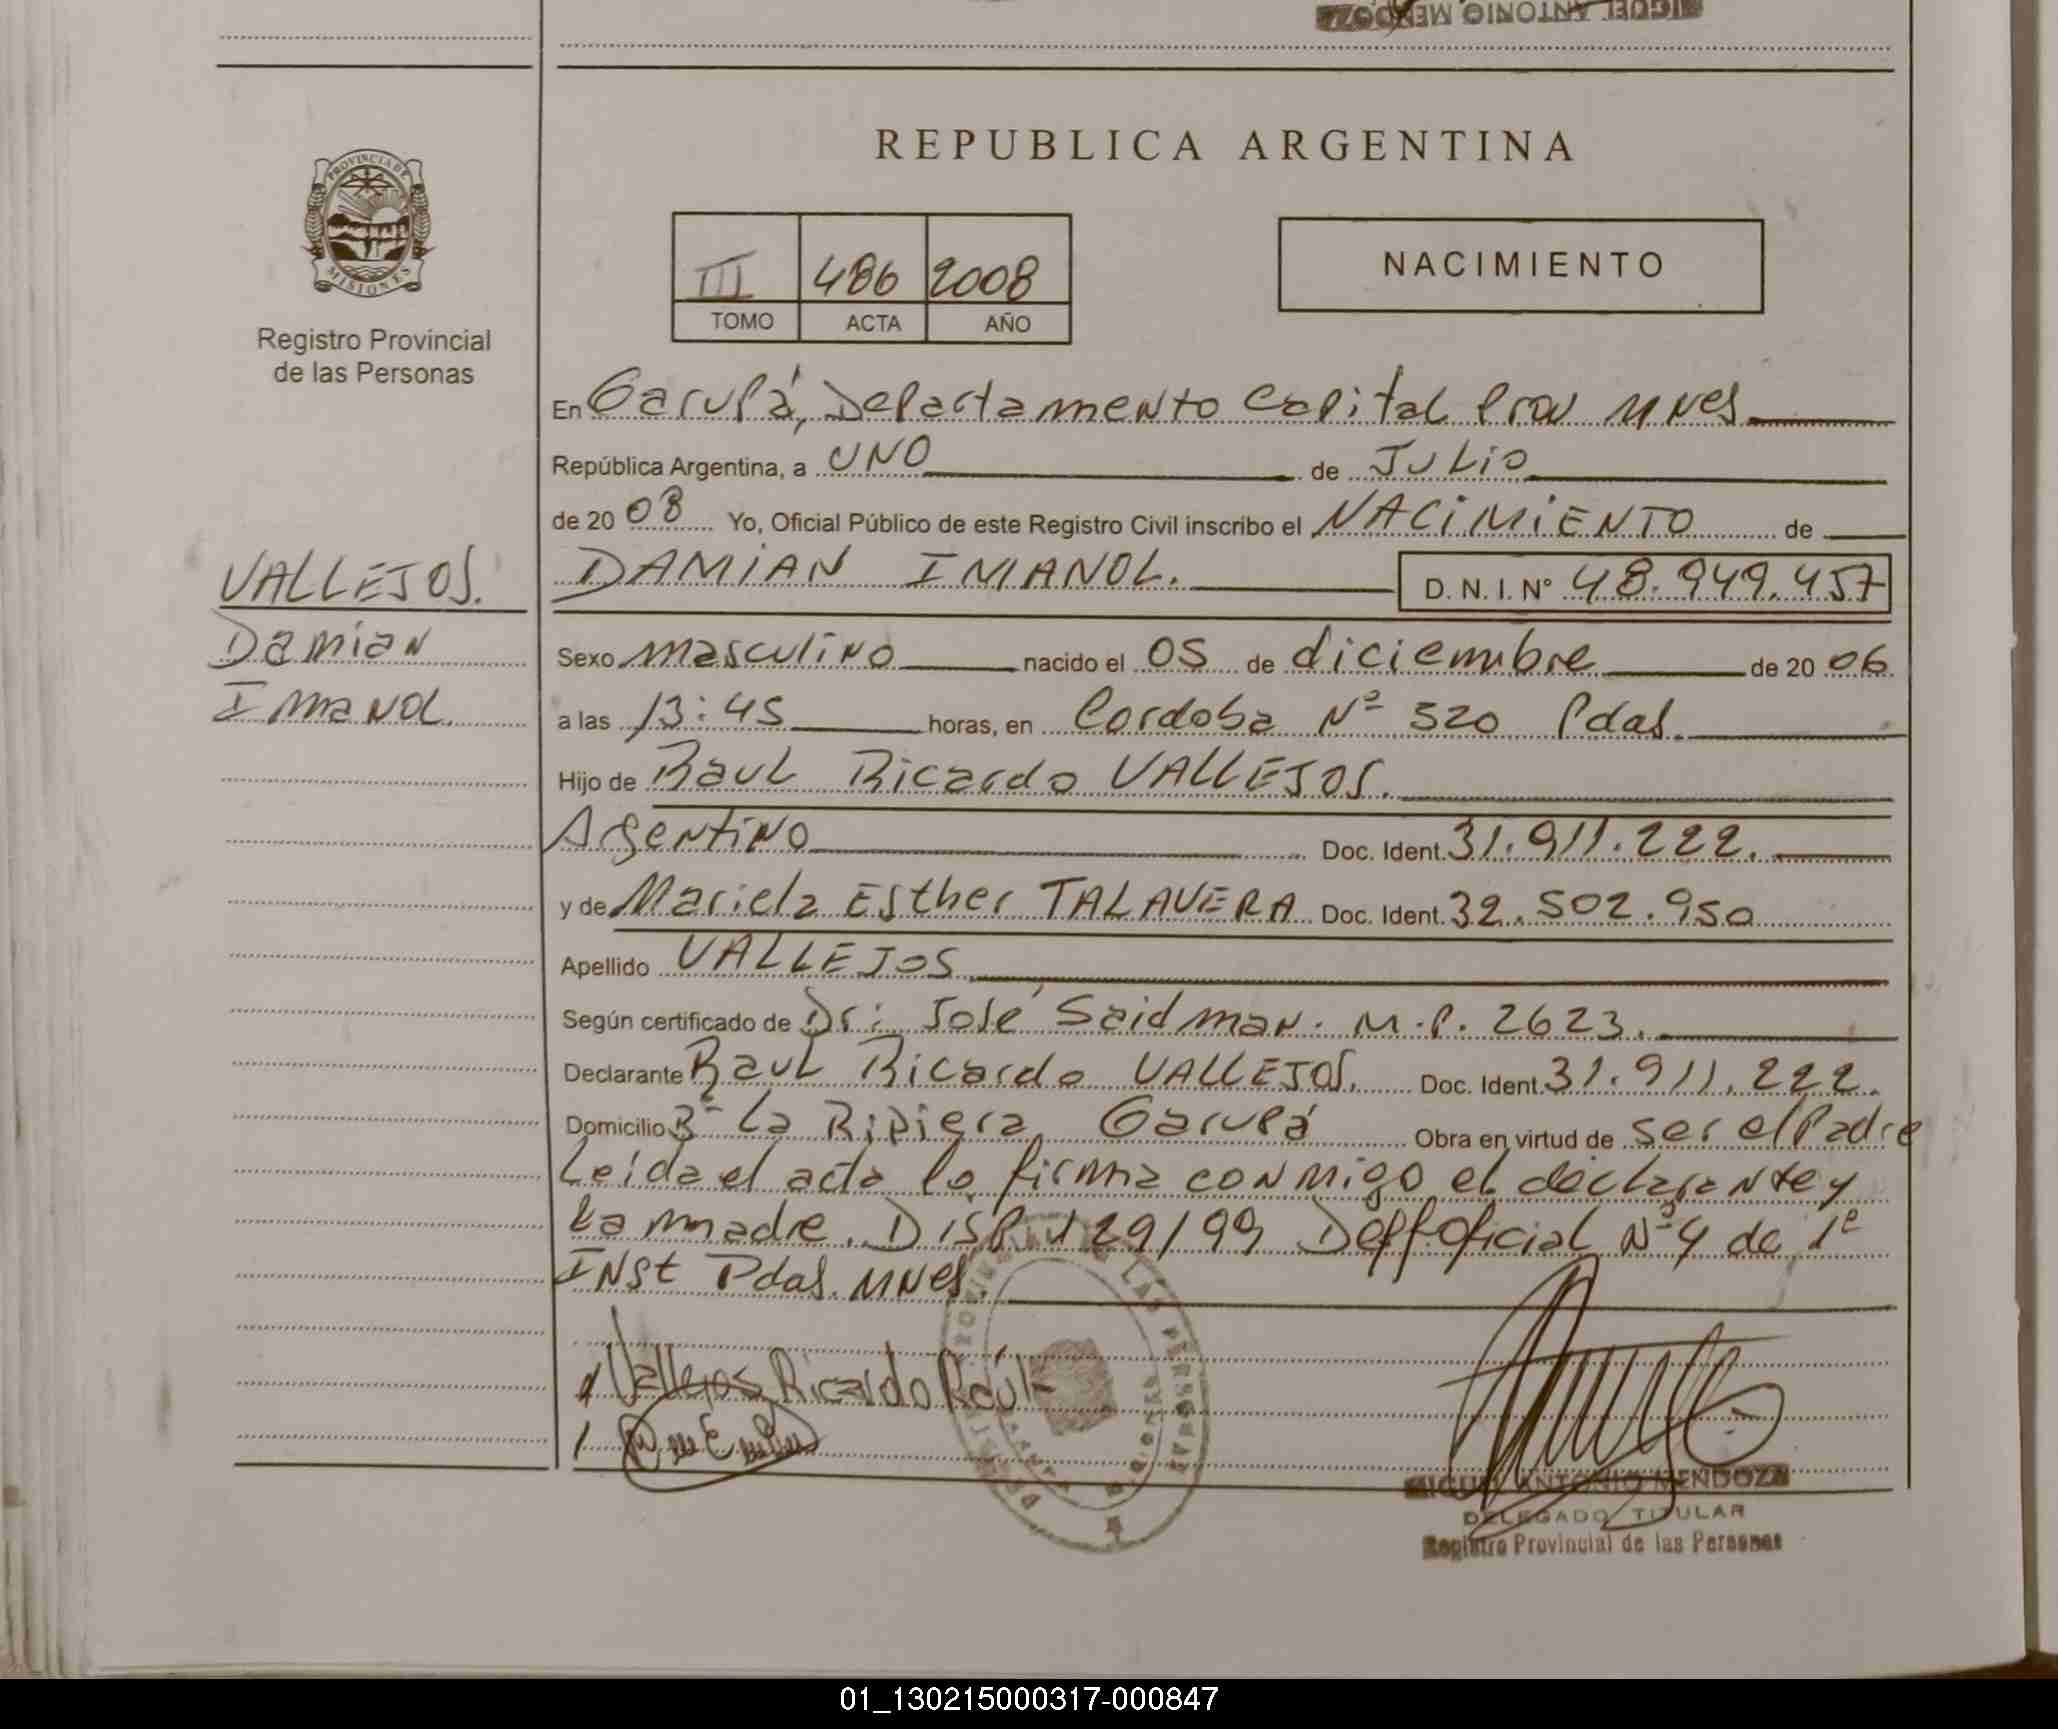 MIGUEL ANTONIO MENDOZA
PROVINCIA DE
MISIONES
Registro Provincial
de las Personas
VALLEJOS.
Damian
Imanol.
REPUBLICA ARGENTINA
III 486 2008
TOMO ACTA AÑO
NACIMIENTO
En Garupá, Departamento Capital Prov Mnes
República Argentina, a UNO de JULIO
de 20 08 Yo, Oficial Público de este Registro Civil inscribo el NACIMIENTO de
DAMIAN IMANOL. D. N. I. N° 48.949.457
Sexo masculino nacido el 05 de diciembre de 20 06
a las 13:45 horas, en Cordoba Nº 320 Pdas.
Hijo de Raul Ricardo VALLEJOS.
Argentino Doc. Ident. 31.911.222.
y de Mariela Esther TALAVERA Doc. Ident. 32.502.950
Apellido VALLEJOS
Según certificado de Dr: José Saidman. M.P. 2623.
Declarante Raul Ricardo VALLEJOS. Doc. Ident. 31.911.222.
Domicilio Bº La Ribiera Garupá Obra en virtud de ser el Padre
Leída el acta la firma conmigo el declarante y
la madre. DISP. 129/99 Deff Oficial Nº 4 de 1º
INst Pdas. MNes.
Vallejos Ricardo Raúl
MIGUEL ANTONIO MENDOZA
DELEGADO TITULAR
Registro Provincial de las Personas
01_130215000317-000847